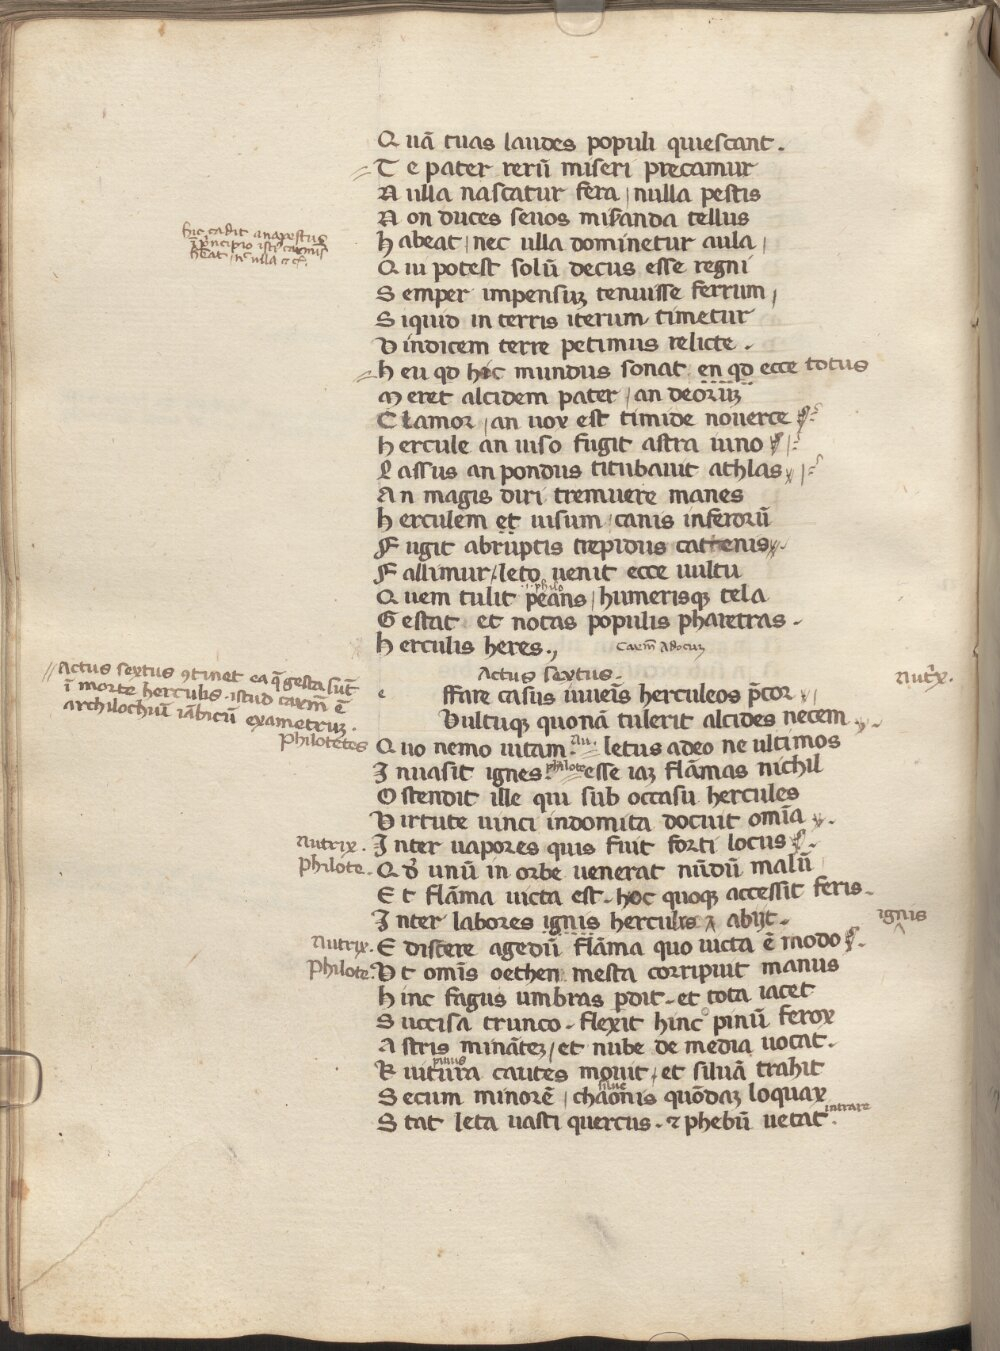 Q uā tuas laudes populi quiescant.
T e pater rerū miseri precamur
N ulla nascatur fera / nulla pestis
N on duces seuos miseranda tellus
hic cadit anapestus
h abeat / nec ulla dominetur aula /
Q ui potest solū decus esse regni
S emper impensuꝫ tenuisse ferrum /
S iquid in terris iterum timetur
V indicem terre petimus relicte .
h eu qd hoc mundus sonat en qd ecce totus
M eret alcidem pater / an deoruꝫ
C lamor / an uox est timide nouerce
h ercule an uiso fugit astra iuno
L assus an pondus titubauit athlas
A n magis diri tremuere manes
h erculem et uisum canis inferorū
F ugit abruptis trepidus cattenis
F allimur / leto uenit ecce uultu
.i. philo
Q uem tulit peans / humerisqꝫ tela
G estat et notas populis pharetras .
h erculis heres .,
Actus sextus .
Actus sextus ꝯtinet ea q̄ gesta sūt
ī morte herculis . istud carmē ē
archilochiū iābicū exametruꝫ .
nutrix.
e ffare casus iuuenis herculeos p̄cor
V ultuqꝫ quonā tulerit alcides necem
Philotetes Q uo nemo uitam . nu. letus adeo ne ultimos
I nuasit ignes . philote esse iaꝫ flāmas nichil
O stendit ille qui sub occasu hercules
V irtute uinci indomita docuit omīa
nutrix . I nter uapores quis fuit forti locus
Philote . Q ð unū in orbe uenerat nūdū malū
E t flāma uicta est . hoc quoqꝫ accessit feris .
I nter labores ignis herculis ⁊ abijt . ignis
nutrix. E discere agedū flāma quo uicta ē modo
Philote. V t omīs oethen mesta corripuit manus
h inc fagus umbras ꝑdit . et tota iacet
S uccisa trunco . flexit hinc pinū ferox
A stris mināteꝫ / et nube de media uocat .
pinus
R uitura cautes mouit , et siluā trahit
silue
S ecum minorē / chaonis quōdaꝫ loquax
S tat leta uasti quercus . ⁊ phebū uetat intrare .